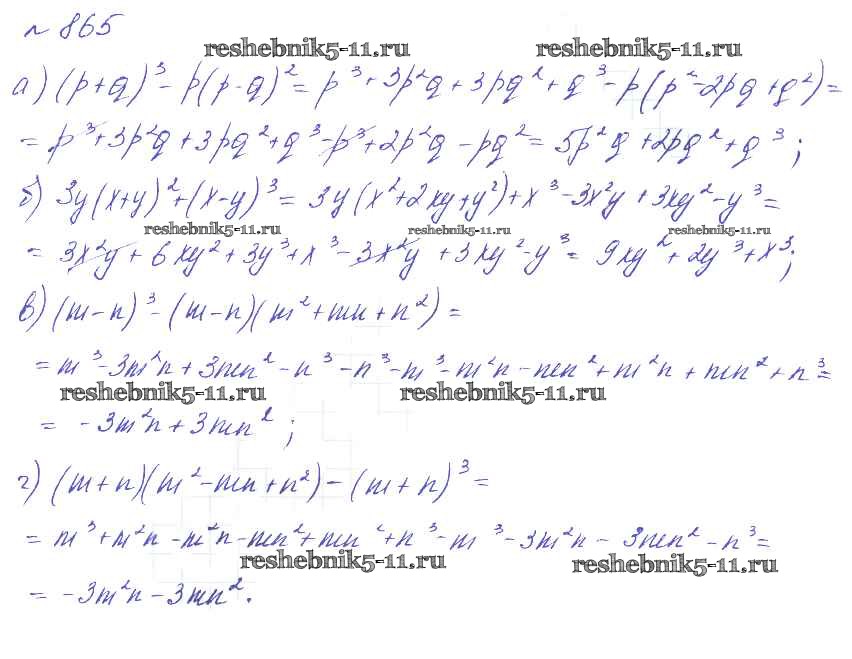 № 865
reshebnik5-11.ru reshebnik5-11.ru
а) (p+q)³ - p(p-q)² = p³ + 3p²q + 3pq² + q³ - p(p² - 2pq + q²) =
= p³ + 3p²q + 3pq² + q³ - p³ + 2p²q - pq² = 5p²q + 2pq² + q³;
б) 3y(x+y)² + (x-y)³ = 3y(x² + 2xy + y²) + x³ - 3x²y + 3xy² - y³ =
reshebnik5-11.ru reshebnik5-11.ru reshebnik5-11.ru
= 3x²y + 6xy² + 3y³ + x³ - 3x²y + 3xy² - y³ = 9xy² + 2y³ + x³;
в) (m-n)³ - (m-n)(m² + mn + n²) =
= m³ - 3m²n + 3mn² - n³ - n³ - m³ - m²n - mn² + m²n + mn² + n³ =
reshebnik5-11.ru reshebnik5-11.ru
= -3m²n + 3mn²;
г) (m+n)(m² - mn + n²) - (m+n)³ =
= m³ + m²n - m²n - mn² + mn² + n³ - m³ - 3m²n - 3mn² - n³ =
reshebnik5-11.ru reshebnik5-11.ru
= -3m²n - 3mn².